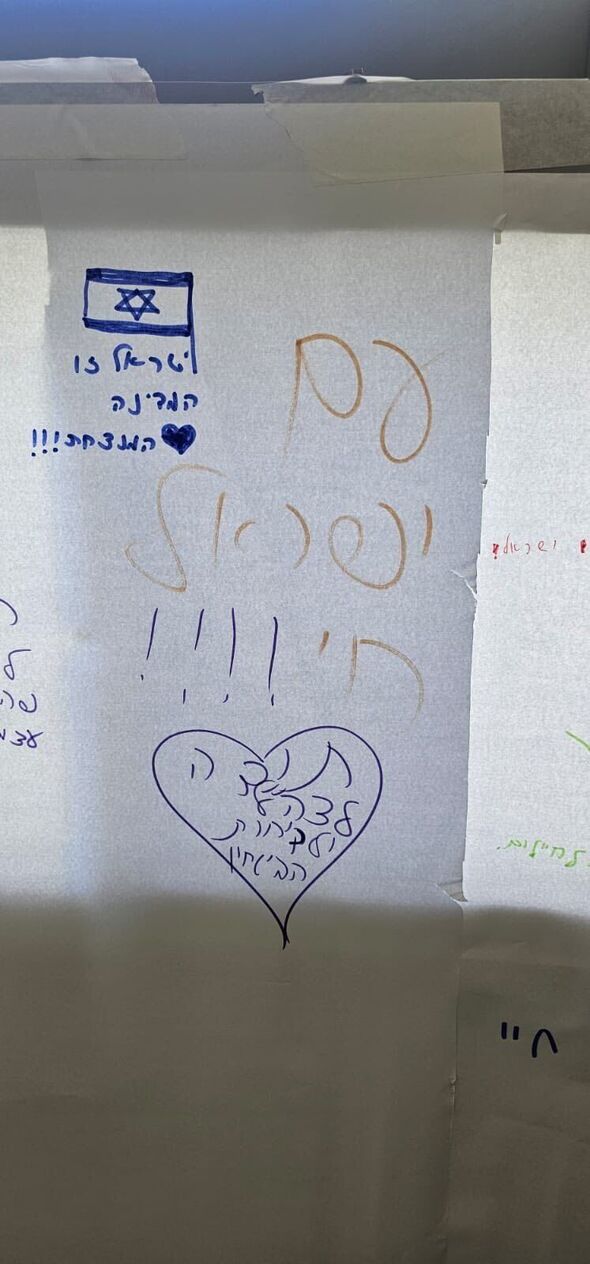 ישראל זו
המדינה
המנצחת!!!
עם
ישראל
חי !!!!
תודה
לצה״ל
ולכוחות
הביטחון
ישראל!
לחיילים.